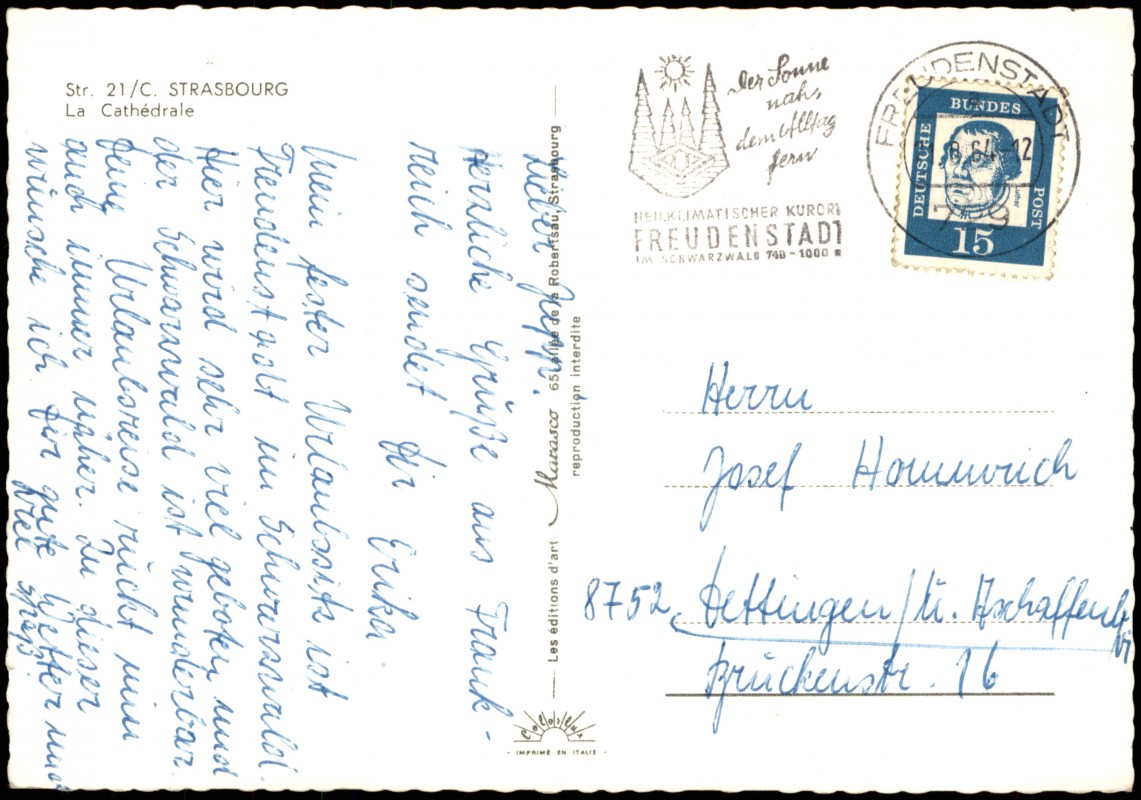 Str. 21/C. STRASBOURG
La Cathédrale
Lieber Jupp.
Herzliche Grüße aus Frank-
reich sendet
Dir Erika
Mein fester Urlaubssitz ist
Freudenstadt im Schwarzwald.
Hier wird sehr viel geboten und
der Schwarzwald ist wunderbar.
Deine Urlaubsreise rückt nun
auch immer näher. Zu dieser
wünsche ich Dir gute Wetter und
viel Spaß
Les éditions d'art Marasco 65, allée de la Robertsau, Strasbourg
reproduction interdite
Colorlux
IMPRIMÉ EN ITALIE
der Sonne
nah,
dem Alltag
fern
HEILKLIMATISCHER KURORT
FREUDENSTADT
IM SCHWARZWALD 740-1000 m
FREUDENSTADT
8.64-12
DEUTSCHE BUNDES POST
Luther
15
Herrn
Josef Hommrich
8752 Dettingen/ü. Aschaffenb
Brückenstr. 16